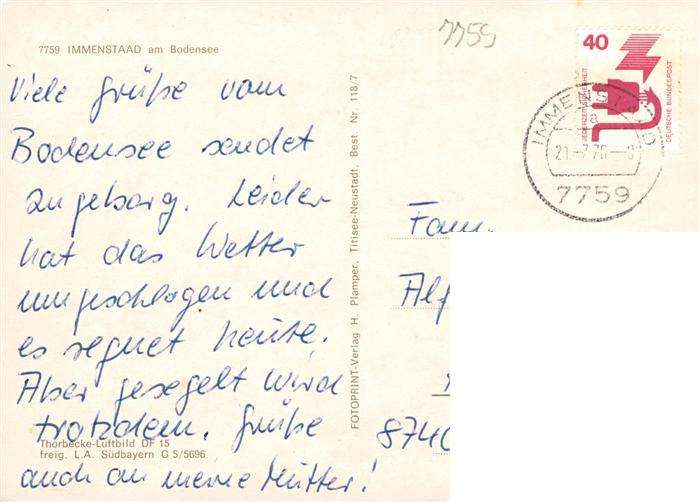 7759 IMMENSTAAD am Bodensee
7759
Viele Grüße vom
Bodensee sendet
Ingeborg. Leider
hat das Wetter
umgeschlagen und
es regnet heute.
Aber gesegelt wird
trotzdem. Grüße
auch an meine Mutter!
Thorbecke-Luftbild DF 15
freig. L.A. Südbayern G 5/5696
FOTOPRINT-Verlag H. Plamper, Titisee-Neustadt, Best Nr. 118/7
40
JEDERZEIT SICHERHEIT
DEUTSCHE BUNDESPOST
a
7759
Fam.
Alf
8740